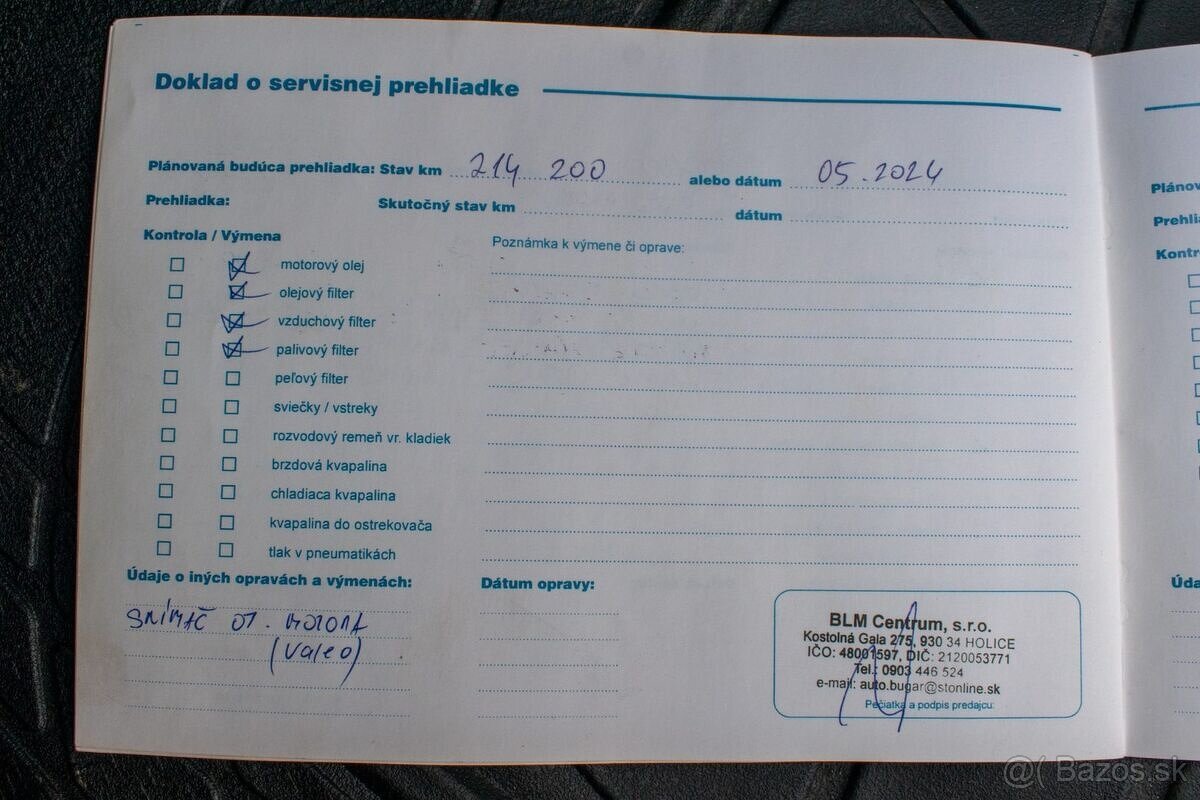 Doklad o servisnej prehliadke
Plánovaná budúca prehliadka: Stav km 214 200 alebo dátum 05.2024
Prehliadka: Skutočný stav km dátum
Kontrola / Výmena
Poznámka k výmene či oprave:
motorový olej
olejový filter
vzduchový filter
palivový filter
peľový filter
sviečky / vstreky
rozvodový remeň vr. kladiek
brzdová kvapalina
chladiaca kvapalina
kvapalina do ostrekovača
tlak v pneumatikách
Údaje o iných opravách a výmenách:
SNÍMAČ OT. MOTORA
(Valeo)
Dátum opravy:
BLM Centrum, s.r.o.
Kostolná Gala 275, 930 34 HOLICE
IČO: 48001597, DIČ: 2120053771
Tel.: 0903 446 524
e-mail: auto.bugar@stonline.sk
Pečiatka a podpis predajcu:
Plánov
Prehli
Kontr
Úda
@( Bazos.sk